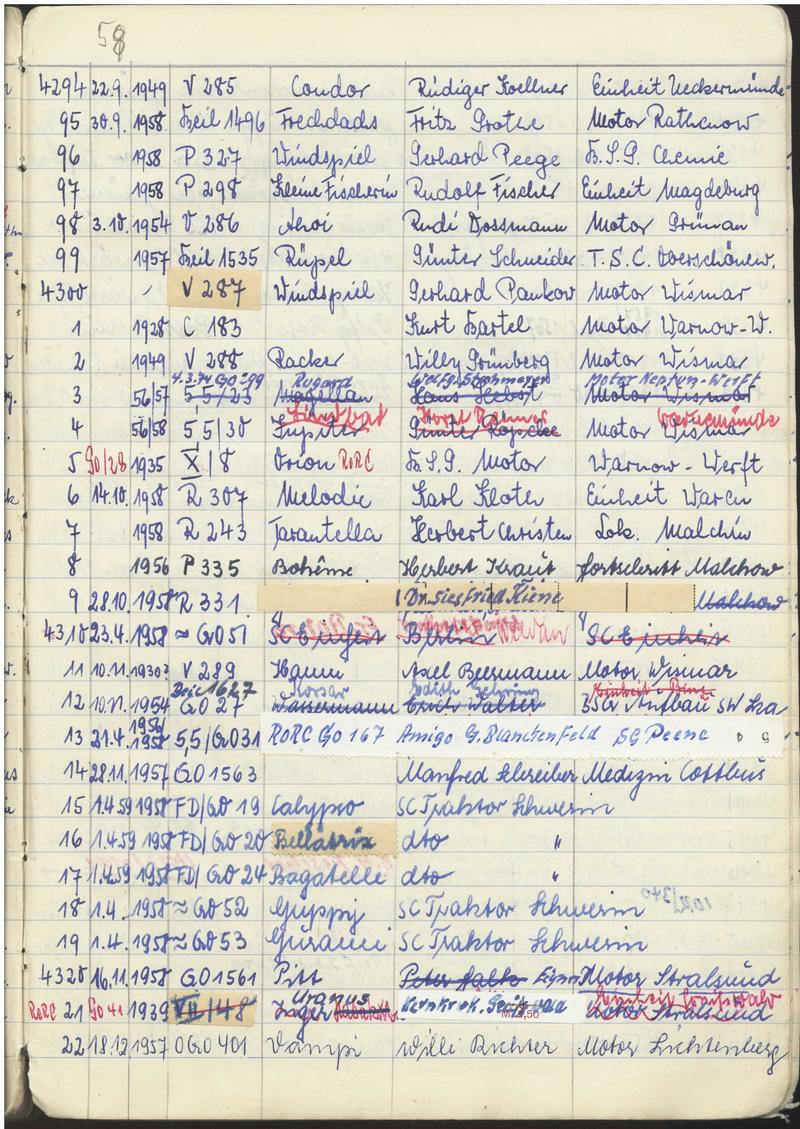 58
4294 22.9. 1949 V 285 Condor Rüdiger Koellner Einheit Ueckermünde
95 30.9. 1958 Heil 1496 Frechdachs Fritz Grothe Motor Rathenow
96 1958 P 327 Windspiel Gerhard Peege B.S.G. Chemie
97 1958 P 298 Kleine Fischerin Rudolf Fischer Einheit Magdeburg
98 3.10. 1954 V 286 Ahoi Rudi Dossmann Motor Grünau
99 1957 Heil 1535 Rüpel Günter Schneider T.S.C. Oberschönew.
4300 V 287 Windspiel Gerhard Pankow Motor Wismar
1 1928 C 183 Kurt Bartel Motor Warnow-W.
2 1949 V 288 Racker Willy Grünberg Motor Wismar
4.3.74 GO 299 Rugard Motor Neptun-Werft
3 56/57 5 5/23 Magellan Hans Herbst Motor Wismar
Warnemünde
4 56/58 5 5/30 Jupiter Günter Köpcke Motor Wismar
5 GO/28 1935 X/8 Orion RORC B.S.G. Motor Warnow-Werft
6 14.10. 1958 R 307 Melodie Karl Kloth Einheit Waren
7 1958 R 243 Tarantella Herbert Christen Lok. Malchin
8 1956 P 335 Bohême Herbert Kraut Fortschritt Malchow
9 28.10. 1958 R 331 Dr. Siegfried Kiene Malchow
4310 23.4. 1958 GO 51 SC Einheit Berlin SC Einheit
11 10.11. 1930? V 289 Hanni Axel Beermann Motor Wismar
Heil 1627 Korsar Edith Gehring
12 10.11. 1954 GO 27 Wassermann Erich Walter BSG Aufbau SW
13 21.4. 1958 5,5/GO31 RORC GO 167 Amigo G. Blanckenfeld SG Peene
14 28.11. 1957 GO 1563 Manfred Schreiber Medizin Cottbus
15 1.4.59 1958 FD/GO 19 Calypso SC Traktor Schwerin
16 1.4.59 1958 FD/GO 20 Bellatrix dto "
17 1.4.59 1958 FD/GO 24 Bagatelle dto "
18 1.4. 1958 ≈ GO 52 Guppy SC Traktor Schwerin
19 1.4. 1958 ≈ GO 53 Gurami SC Traktor Schwerin
4320 16.11. 1958 GO 1561 Pitt Motor Stralsund
Uranus
RORC 21 GO 41 1939 VII/48 Jäger Motor Stralsund
22 18.12. 1957 OGO 401 Vampi Willi Richter Motor Lichtenberg